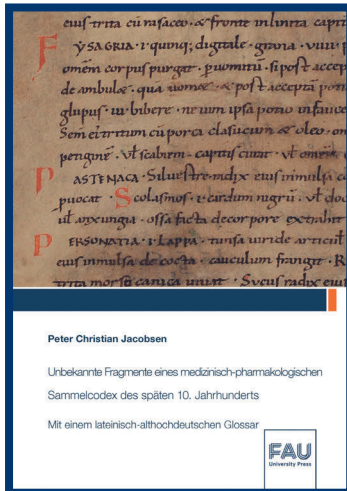 eius trita cū rosaceo · & fronte inlinita capiti
F
YSAGRIA · i · quinq; digitale · grana · viiii · p
omēm corpus purgat · p uomitū · si post accep
de ambulæ · qua uomæ · & post acceptā poti
bibere · ne um ipsa potio infauce
Sem ei tritum cū porca clasucum & oleo · om
petiginē · Vt scabiem · capitis curat · vt omem
P ASTENACA · Siluestre radix eius inmulsa c
puocat · Scolasmos · i · cardum nigrū · vt doc
ut anxungia · ossa facta de corpore extrahit
P ERSONATIA · i · LAPPA · tunsa uiride articul
eius inmulsa de cocta · cauculum frangit · R
trita morsū canica unit · Sucus radix eius
Peter Christian Jacobsen
Unbekannte Fragmente eines medizinisch-pharmakologischen
Sammelcodex des späten 10. Jahrhunderts
Mit einem lateinisch-althochdeutschen Glossar
FAU
University Press